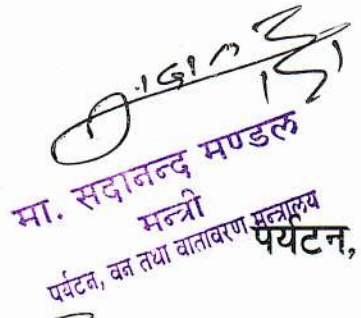 मा. सदानन्द मण्डल
मन्त्री
पर्यटन, वन तथा वातावरण मन्त्रालय
पर्यटन,